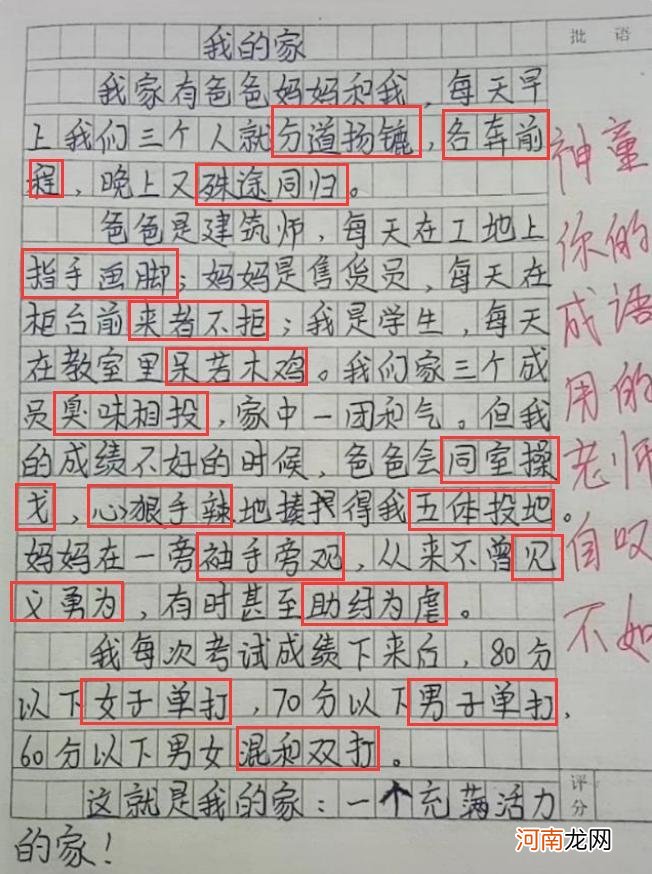 我的家
批语
我家有爸爸妈妈和我，每天早
上我们三个人就分道扬镳，各奔前
程，晚上又殊途同归。
爸爸是建筑师，每天在工地上
指手画脚；妈妈是售货员，每天在
柜台前来者不拒；我是学生，每天
在教室里呆若木鸡。我们家三个成
员臭味相投，家中一团和气。但我
的成绩不好的时候，爸爸会同室操
戈，心狠手辣地揍得我五体投地。
妈妈在一旁袖手旁观，从来不曾见
义勇为，有时甚至助纣为虐。
我每次考试成绩下来后，80分
以下女子单打，70分以下男子单打，
60分以下男女混和双打。
这就是我的家：一个充满活力
的家！
神童
你的
成语
用的
老师
自叹
不如
评分
河南龙网